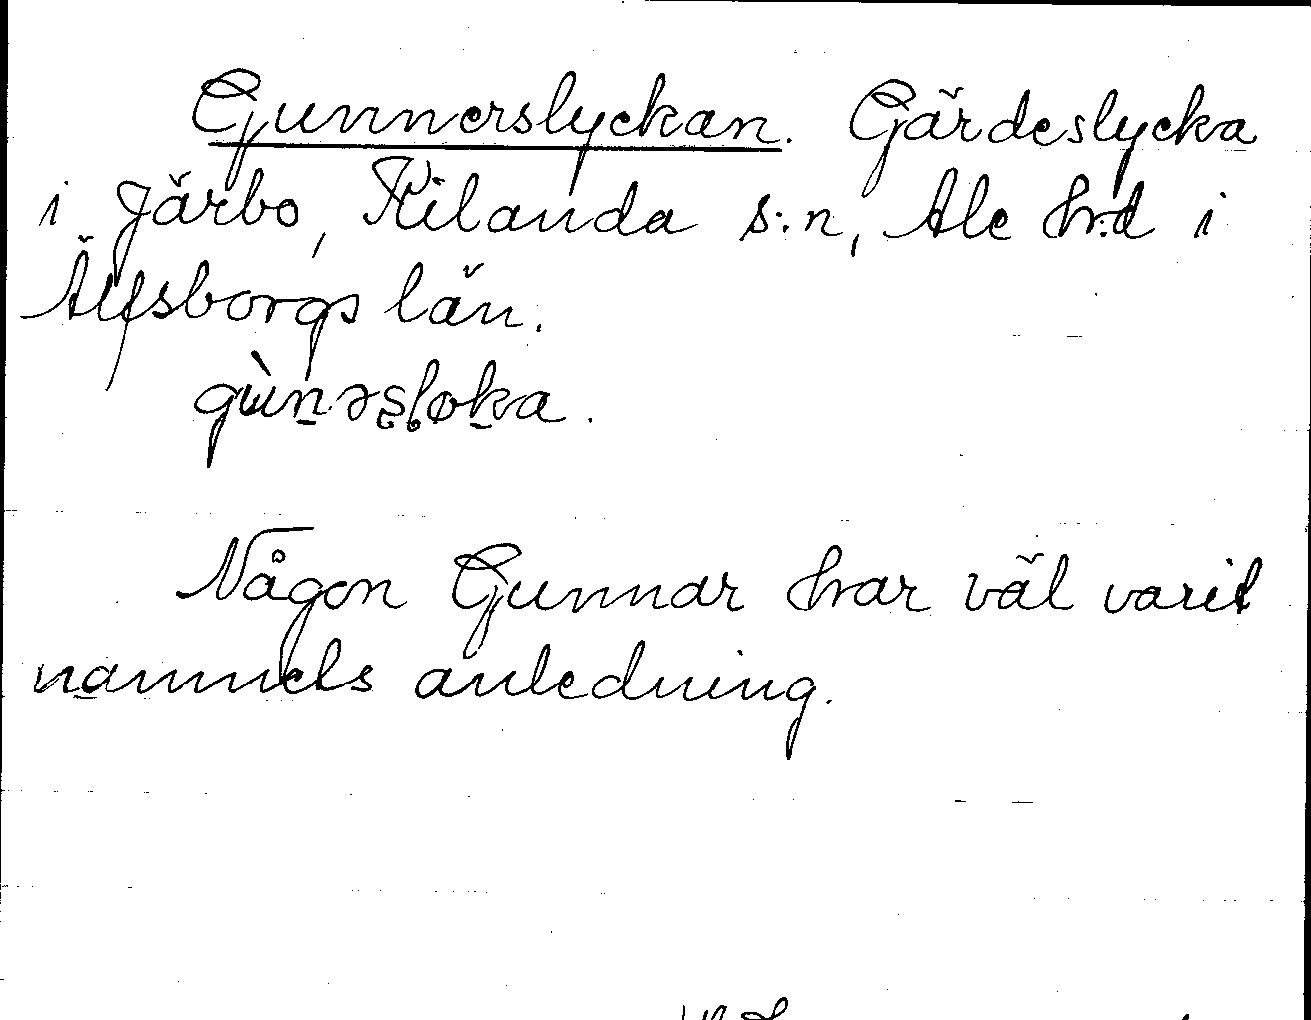 Gunnerslyckan. Gärdeslycka
i Järbo, Kilanda s:n, Ale hrd i
Älfsborgs län.
gɯ̀n̠əʂl̥øk̠a.
Någon Gunnar har väl varit
namnets anledning.